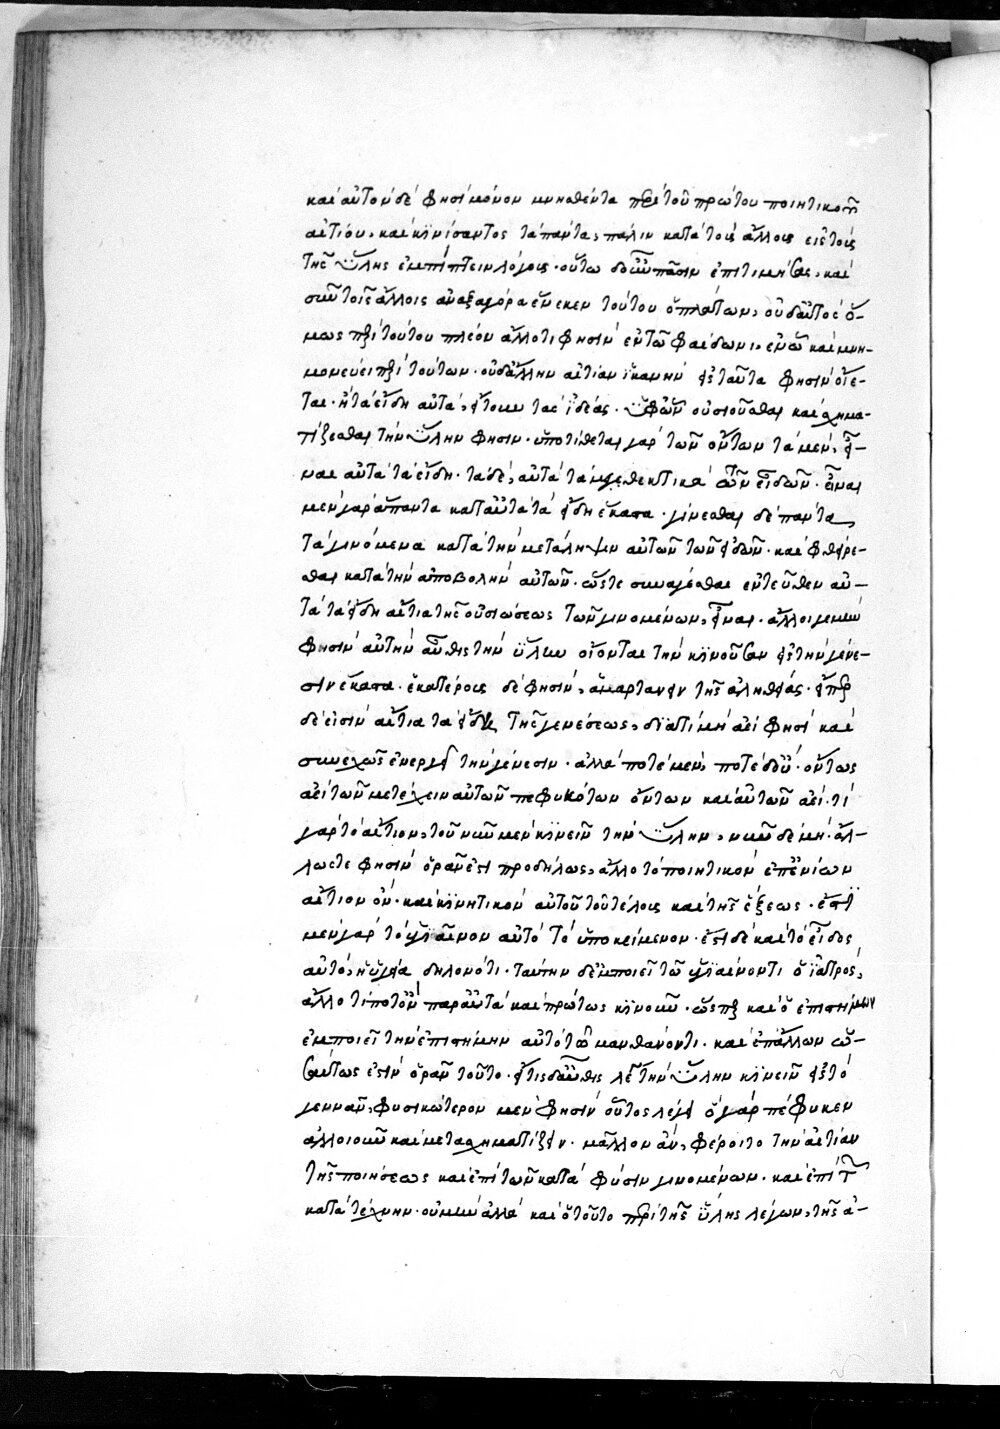 καὶ αὐτὸν δέ φησι μόνον μνησθέντα περὶ τοῦ πρώτου ποιητικοῦ
αἰτίου, καὶ κινήσαντος τὰ πάντα, πάλιν κατὰ τοὺς ἄλλους εἰς τοὺς
τῆς ὕλης ἐμπίπτειν λόγους. οὕτω δ' οὖν πᾶσιν ἐπιτιμήσας, καὶ
σὺν τοῖς ἄλλοις ἀναξαγόρα ἕνεκεν τούτου ὁ πλάτων, οὐδ' αὐτὸς ὅ-
μως περὶ τούτου πλέον ἄλλό τι φησὶν ἐν τῶ φαίδωνι, ἐν ὧ καὶ μνη-
μονεύει περὶ τούτων. οὐδ' ἄλλην αἰτίαν ἱκανὴν εἰς ταῦτα φησὶν οἴε-
ται. ἢ τὰ εἴδη αὐτὰ, ἤτοι τὰς ἰδέας. ὑφ' ὧν οὐσιοῦσθαι καὶ σχημα-
τίζεσθαι τὴν ὕλην φησιν. ὑποτίθεται γὰρ τῶν ὄντων τὰ μὲν, εἶ-
ναι αὐτὰ τὰ εἴδη. τὰ δὲ, αὐτὰ τὰ μεθεκτικὰ τῶν εἰδῶν. εἶναι
μὲν γὰρ ἅπαντα κατ' αὐτὰ τὰ εἴδη ἕκαστα. γίνεσθαι δὲ πάντα
τὰ γινόμενα κατὰ τὴν μετάληψιν αὐτῶν τῶν εἰδῶν. καὶ φθείρε-
σθαι κατὰ τὴν ἀποβολὴν αὐτῶν. ὥστε συνάγεσθαι ἐντεῦθεν αὐ-
τὰ τὰ εἴδη αἴτια τῆς οὐσιώσεως τῶν γινομένων, εἶναι. ἄλλοι μὲν
φησὶν αὐτὴν αὖθις τὴν ὕλην οἴονται τὴν κινοῦσαν εἰς τὴν γένε-
σιν ἕκαστα. ἑκατέρους δέ φησιν, ἁμαρτάνειν τῆς ἀληθείας. εἴπερ
δέ εἰσιν αἴτια τὰ εἴδη τῆς γενέσεως, διατί μὴ ἀεί φησι καὶ
συνεχῶς ἐνεργεῖ τὴν γένεσιν. ἀλλὰ ποτὲ μὲν, ποτὲ δ' οὔ. ὄντως
ἀεὶ τῶν μετέχειν αὐτῶν πεφυκότων ὄντων καὶ αὐτῶν ἀεί. τί
γὰρ τὸ αἴτιον, τοῦ νῦν μὲν κινεῖν τὴν ὕλην, νῦν δὲ μή. ἄλ-
λως τε φησὶν ὁρᾶν ἐστι προδήλως, ἄλλο τὸ ποιητικὸν ἐπ' ἐνίων
αἴτιον ὂν. καὶ κινητικὸν αὐτοῦ τοῦ τέλους καὶ τῆς ἕξεως. ἔστι
μὲν γὰρ τὸ ὑγιαῖνον αὐτὸ τὸ ὑποκείμενον. ἔστι δὲ καὶ τὸ εἶδος
αὐτὸ, ἡ ὑγεία δηλονότι. ταύτην δ' ἐμποιεῖ τῶ ὑγιαίνοντι ὁ ἰατρὸς,
ἄλλό τι ποτ' ὂν παρ' αὐτὰ καὶ πρώτως κινοῦν. ὥσπερ καὶ ὁ ἐπιστήμων
ἐμποιεῖ τὴν ἐπιστήμην αὐτὸ τῶ μανθάνοντι. καὶ ἐπ' ἄλλων ὡ-
σαύτως ἐστὶν ὁρᾶν τοῦτο. εἴ τις δ' αὖθις λέγει τὴν ὕλην κινεῖν εἰς τὸ
γεννᾶν, φυσικώτερον μὲν φησὶν οὗτος λέγει ὃ γὰρ πέφυκεν
ἀλλοιοῦν καὶ μετασχηματίζειν. μᾶλλον ἂν, φέροιτο τὴν αἰτίαν
τῆς ποιήσεως καὶ ἐπὶ τῶν κατὰ φύσιν γινομένων. καὶ ἐπὶ τῶν
κατὰ τέχνην. οὐ μὴν ἀλλὰ καὶ ὁ τοῦτο περὶ τῆς ὕλης λέγων, τῆς ἀ-